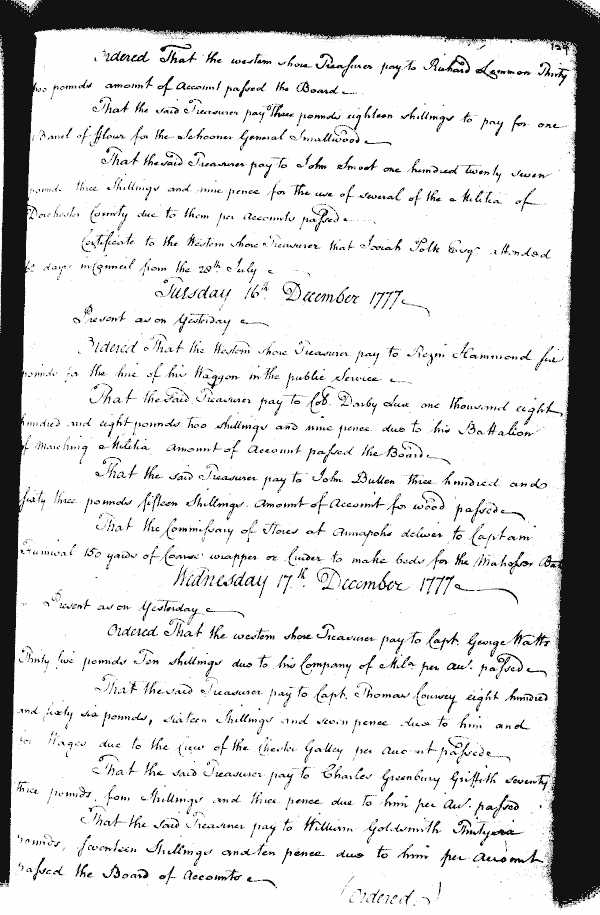 124
Ordered That the western shore Treasurer pay to Richard Lemmon Thirty
two pounds amount of Account passed the Board
That the said Treasurer pay three pounds eighteen shillings to pay for one
Barrel of flour for the Schooner General Smallwood
That the said Treasurer pay to John Smoot one hundred twenty seven
pounds three Shillings and nine pence for the use of several of the Militia of
Dorchester County due to them per Accounts passed
Certificate to the Western shore Treasurer that Josiah Polk Esqr. attended
days in Council from the 28th July
Tuesday 16th December 1777
Present as on Yesterday
Ordered That the Western shore Treasurer pay to Rezin Hammond five
pounds for the hire of his Waggon in the public Service
That the said Treasurer pay to Col. Darby Lux one thousand eight
hundred and eight pounds two shillings and nine pence due to his Battalion
of marching Militia amount of Account passed the Board
That the said Treasurer pay to John Bullen three hundred and
sixty three pounds fifteen Shillings. amount of Account for wood passed
That the Commissary of Stores at Annapolis deliver to Captain
150 yards of Coarse wrapper or to make beds for the
Wednesday 17th December 1777
Present as on Yesterday
Ordered That the western shore Treasurer pay to Capt. George Watts
Thirty five pounds Ten shillings due to his Company of Mila per Acct. passed
That the said Treasurer pay to Capt. Thomas Coursey eight hundred
and sixty six pounds, sixteen Shillings and seven pence due to him and
for Wages due to the Crew of the Chester Galley per Account passed
That the said Treasurer pay to Charles Greenbury Griffith seventy
three pounds, four Shillings and three pence due to him per Acct. passed
That the said Treasurer pay to William Goldsmith Thirty six
pounds, seventeen Shillings and ten pence due to him per Account
passed the Board of Accounts
(ordered)